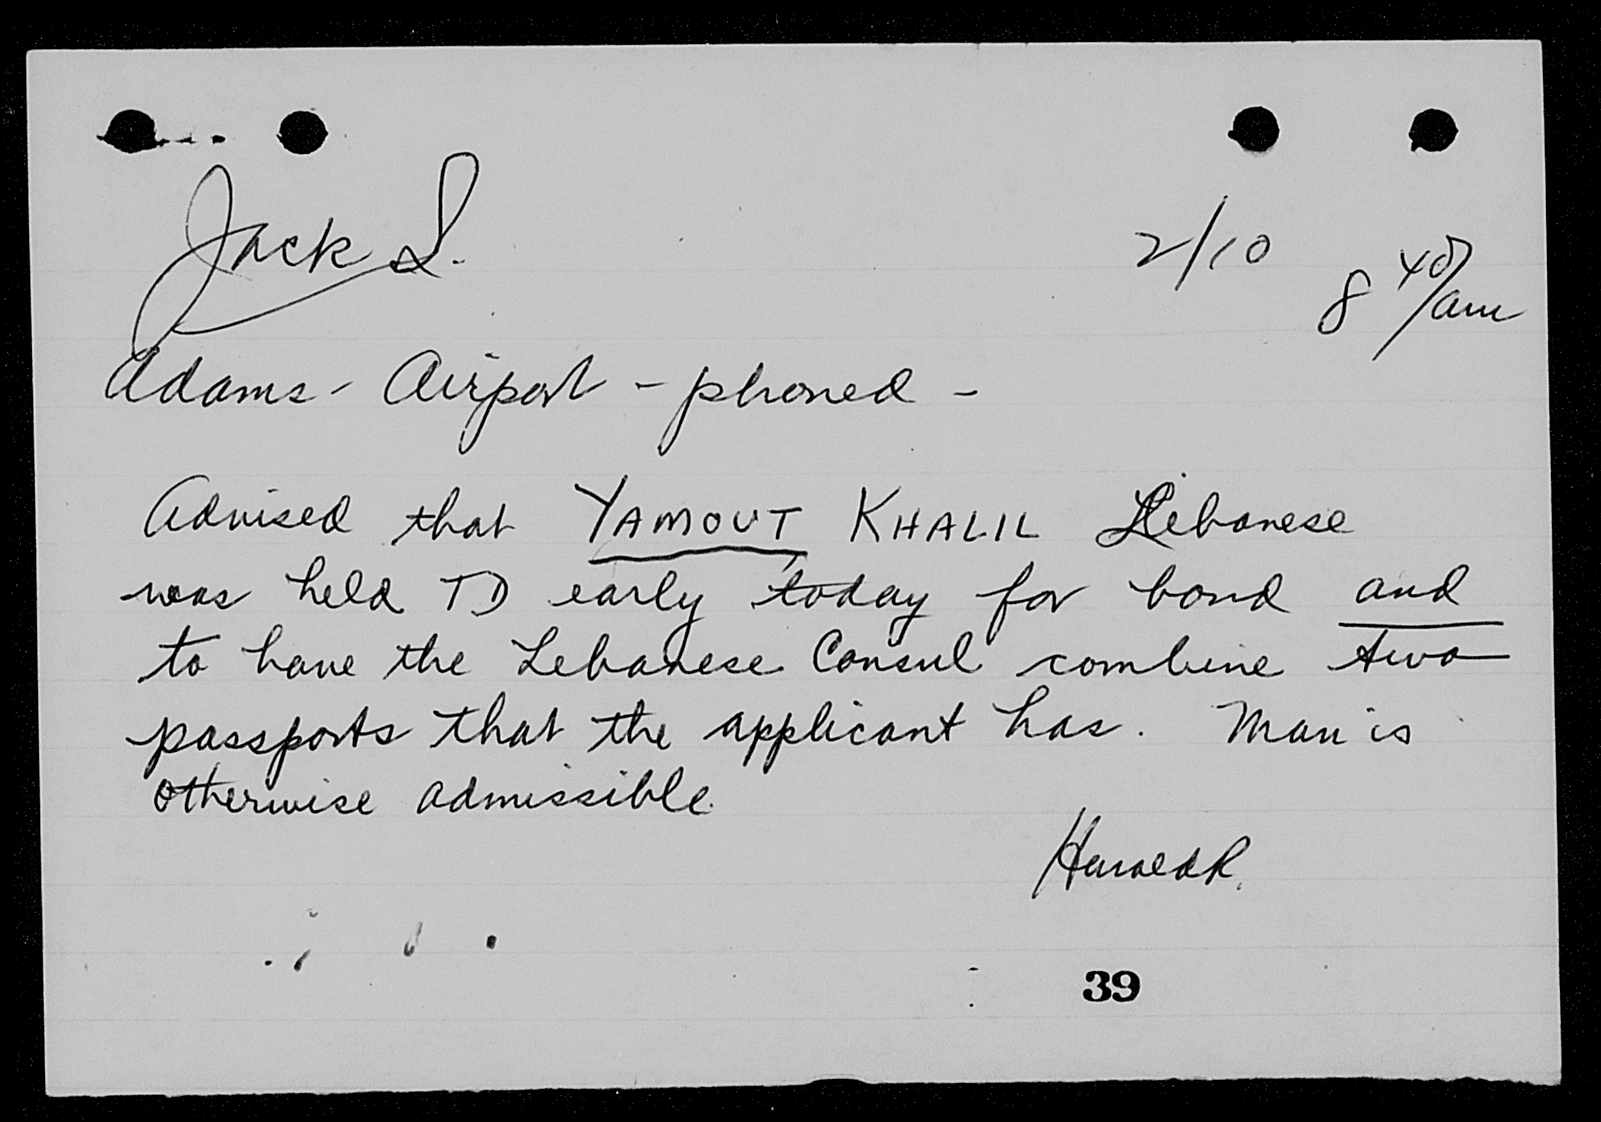 Jack S.
2/10 8 40/am
Adams - Airport - phoned -
Advised that YAMOUT KHALIL Lebanese
was held TD early today for bond and
to have the Lebanese Consul combine two
passports that the applicant has. Man is
otherwise admissible.
Harold R.
39